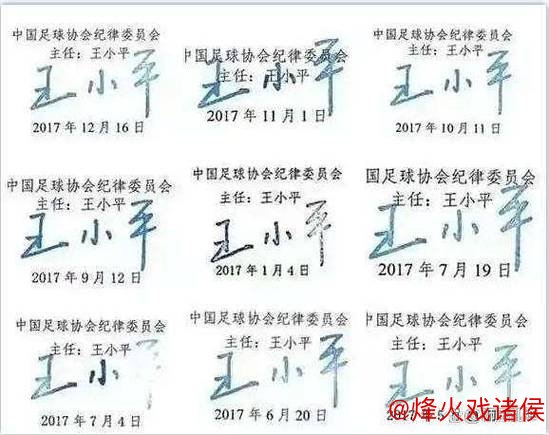 中国足球协会纪律委员会
主任：王小平
王小平
2017年12月16日
中国足球协会纪律委员会
主任：王小平
王小平
2017年11月1日
中国足球协会纪律委员会
主任：王小平
王小平
2017年10月11日
中国足球协会纪律委员会
主任：王小平
王小平
2017年9月12日
中国足球协会纪律委员会
主任：王小平
王小平
2017年1月4日
国足球协会纪律委员会
主任：王小平
王小平
2017年7月19日
中国足球协会纪律委员会
主任：王小平
王小平
2017年7月4日
中国足球协会纪律委员会
主任：王小平
王小平
2017年6月20日
中国足球协会纪律委员会
主任：王小平
王小平
2017年5
@烽火戏诸侯